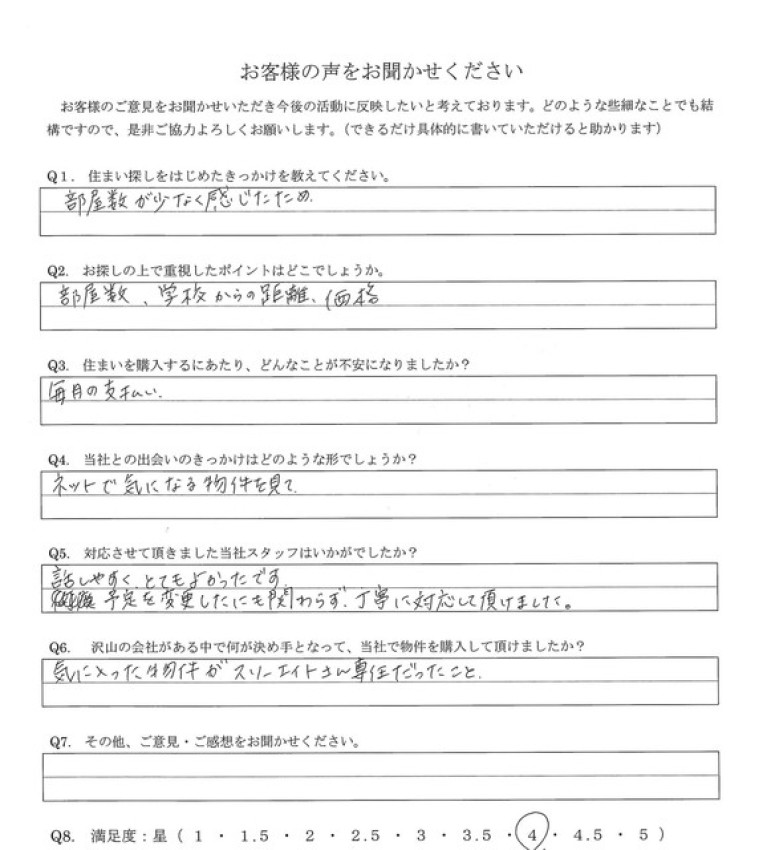 お客様の声をお聞かせください
お客様のご意見をお聞かせいただき今後の活動に反映したいと考えております。どのような些細なことでも結
構ですので、是非ご協力よろしくお願いします。（できるだけ具体的に書いていただけると助かります）
Q1. 住まい探しをはじめたきっかけを教えてください。
部屋数が少なく感じたため.
Q2. お探しの上で重視したポイントはどこでしょうか。
部屋数、学校からの距離、価格
Q3. 住まいを購入するにあたり、どんなことが不安になりましたか？
毎月の支払い.
Q4. 当社との出会いのきっかけはどのような形でしょうか？
ネットで気になる物件を見て.
Q5. 対応させて頂きました当社スタッフはいかがでしたか？
話しやすく、とてもよかったです.
予定を変更したにも関わらず、丁寧に対応して頂けました。
Q6. 沢山の会社がある中で何が決め手となって、当社で物件を購入して頂けましたか？
気に入った物件がスリーエイトさん専任だったこと.
Q7. その他、ご意見・ご感想をお聞かせください。
Q8. 満足度：星（ 1 ・ 1.5 ・ 2 ・ 2.5 ・ 3 ・ 3.5 ・ 4 ・ 4.5 ・ 5 ）